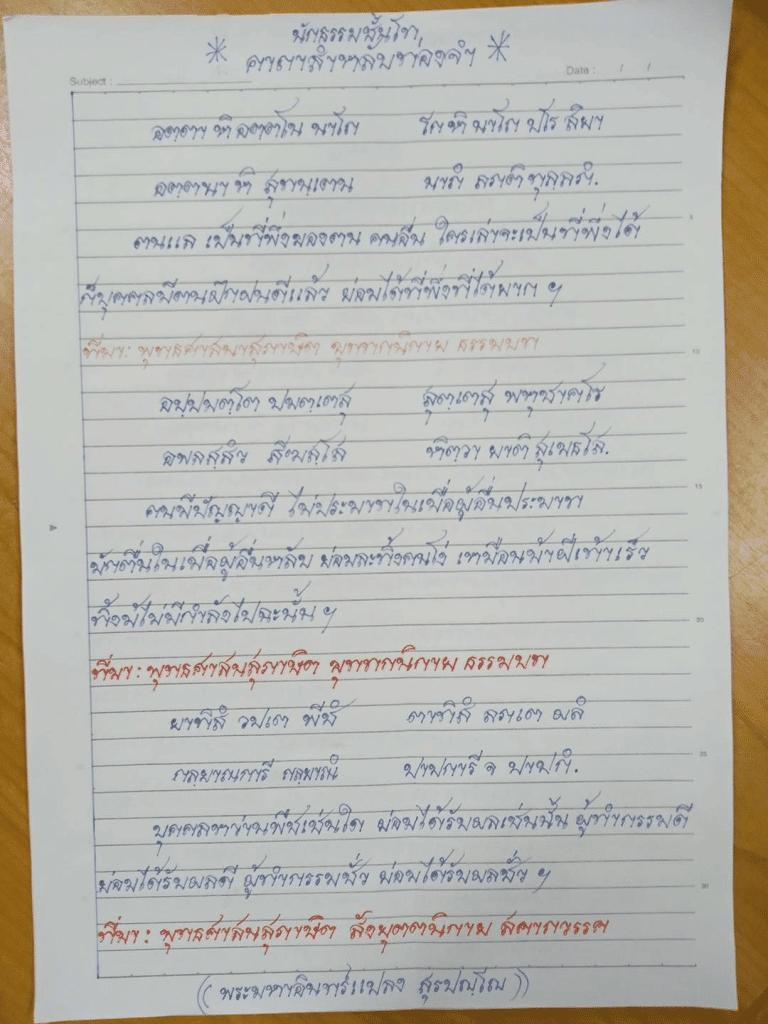 นักธรรมชั้นโท
คาถาสำหรับท่องจำ
Subject : Date : / /
อตฺตา หิ อตฺตโน นาโถ โก หิ นาโถ ปโร สิยา
อตฺตนา หิ สุทนฺเตน นาถํ ลภติ ทุลฺลภํ.
ตนแล เป็นที่พึ่งของตน คนอื่น ใครเล่าจะเป็นที่พึ่งได้
ก็บุคคลมีตนฝึกฝนดีแล้ว ย่อมได้ที่พึ่งที่ได้ยาก ฯ
ที่มา: พุทธศาสนสุภาษิต ขุททกนิกาย ธรรมบท
อปฺปมตฺโต ปมตฺเตสุ สุตฺเตสุ พหุชาคโร
อพลสฺสํว สีฆสฺโส หิตฺวา ยาติ สุเมธโส.
คนมีปัญญาดี ไม่ประมาทในเมื่อผู้อื่นประมาท
มักตื่นในเมื่อผู้อื่นหลับ ย่อมละทิ้งคนโง่ เหมือนม้าฝีเท้าเร็ว
ทิ้งม้าไม่มีกำลังไปฉะนั้น ฯ
ที่มา: พุทธศาสนสุภาษิต ขุททกนิกาย ธรรมบท
ยาทิสํ วปเต พีชํ ตาทิสํ ลภเต ผลํ
กลฺยาณการี กลฺยาณํ ปาปการี จ ปาปกํ.
บุคคลหว่านพืชเช่นใด ย่อมได้รับผลเช่นนั้น ผู้ทำกรรมดี
ย่อมได้รับผลดี ผู้ทำกรรมชั่ว ย่อมได้รับผลชั่ว ฯ
ที่มา: พุทธศาสนสุภาษิต สังยุตตนิกาย สคาถวรรค
((พระมหาอินทร์แปลง สุรปญฺโญ))